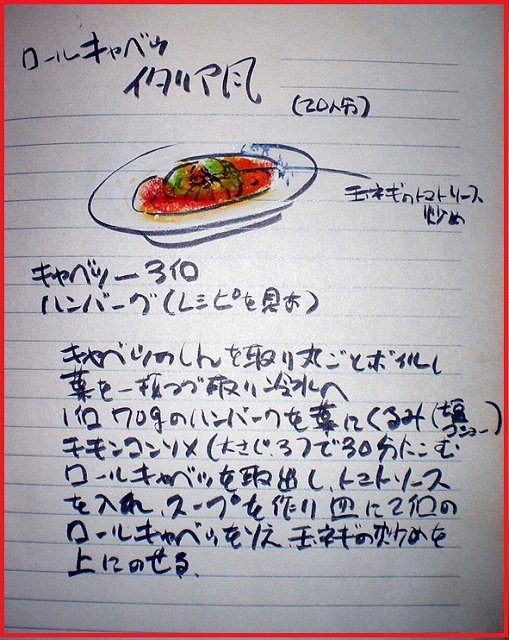 ロールキャベツ
イタリア風
(20人分)
玉ネギのトマトソース
炒め
キャベツ ー 3個
ハンバーグ(レシピを見よ)
キャベツのしんを取り丸ごとボイルし
葉を一枚づつ取り冷水へ
1個70gのハンバークを葉にくるみ(塩
コショー)
チキンコンソメ(大さじ.3)で30分にこむ
ロールキャベツを取出し、トマトソース
を入れ、スープを作り皿に2個の
ロールキャベツをソえ、玉ネギの炒めを
上にのせる、